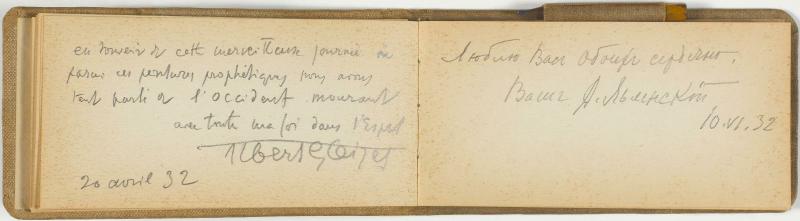 en souvenir de cette merveilleuse journée où
parmi ces peintures prophétiques nous avons
tant parlé de l'Occident mourant
avec toute ma foi dans l'Esprit
Albert Gleizes
20 avril 32
Люблю Вас обоих сердечно.
Ваш А.
10.VI.32